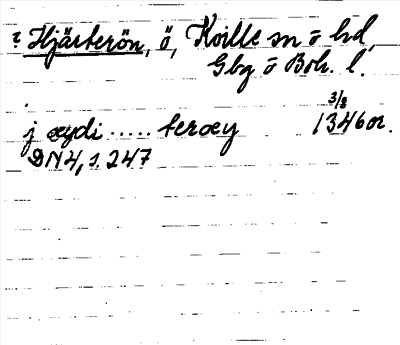 ? Hjärterön, ö, Kville sn o hd,
Gbg o Boh. l.
3/8
j øydi ..... terøy 1346 or.
DN 4, s. 247